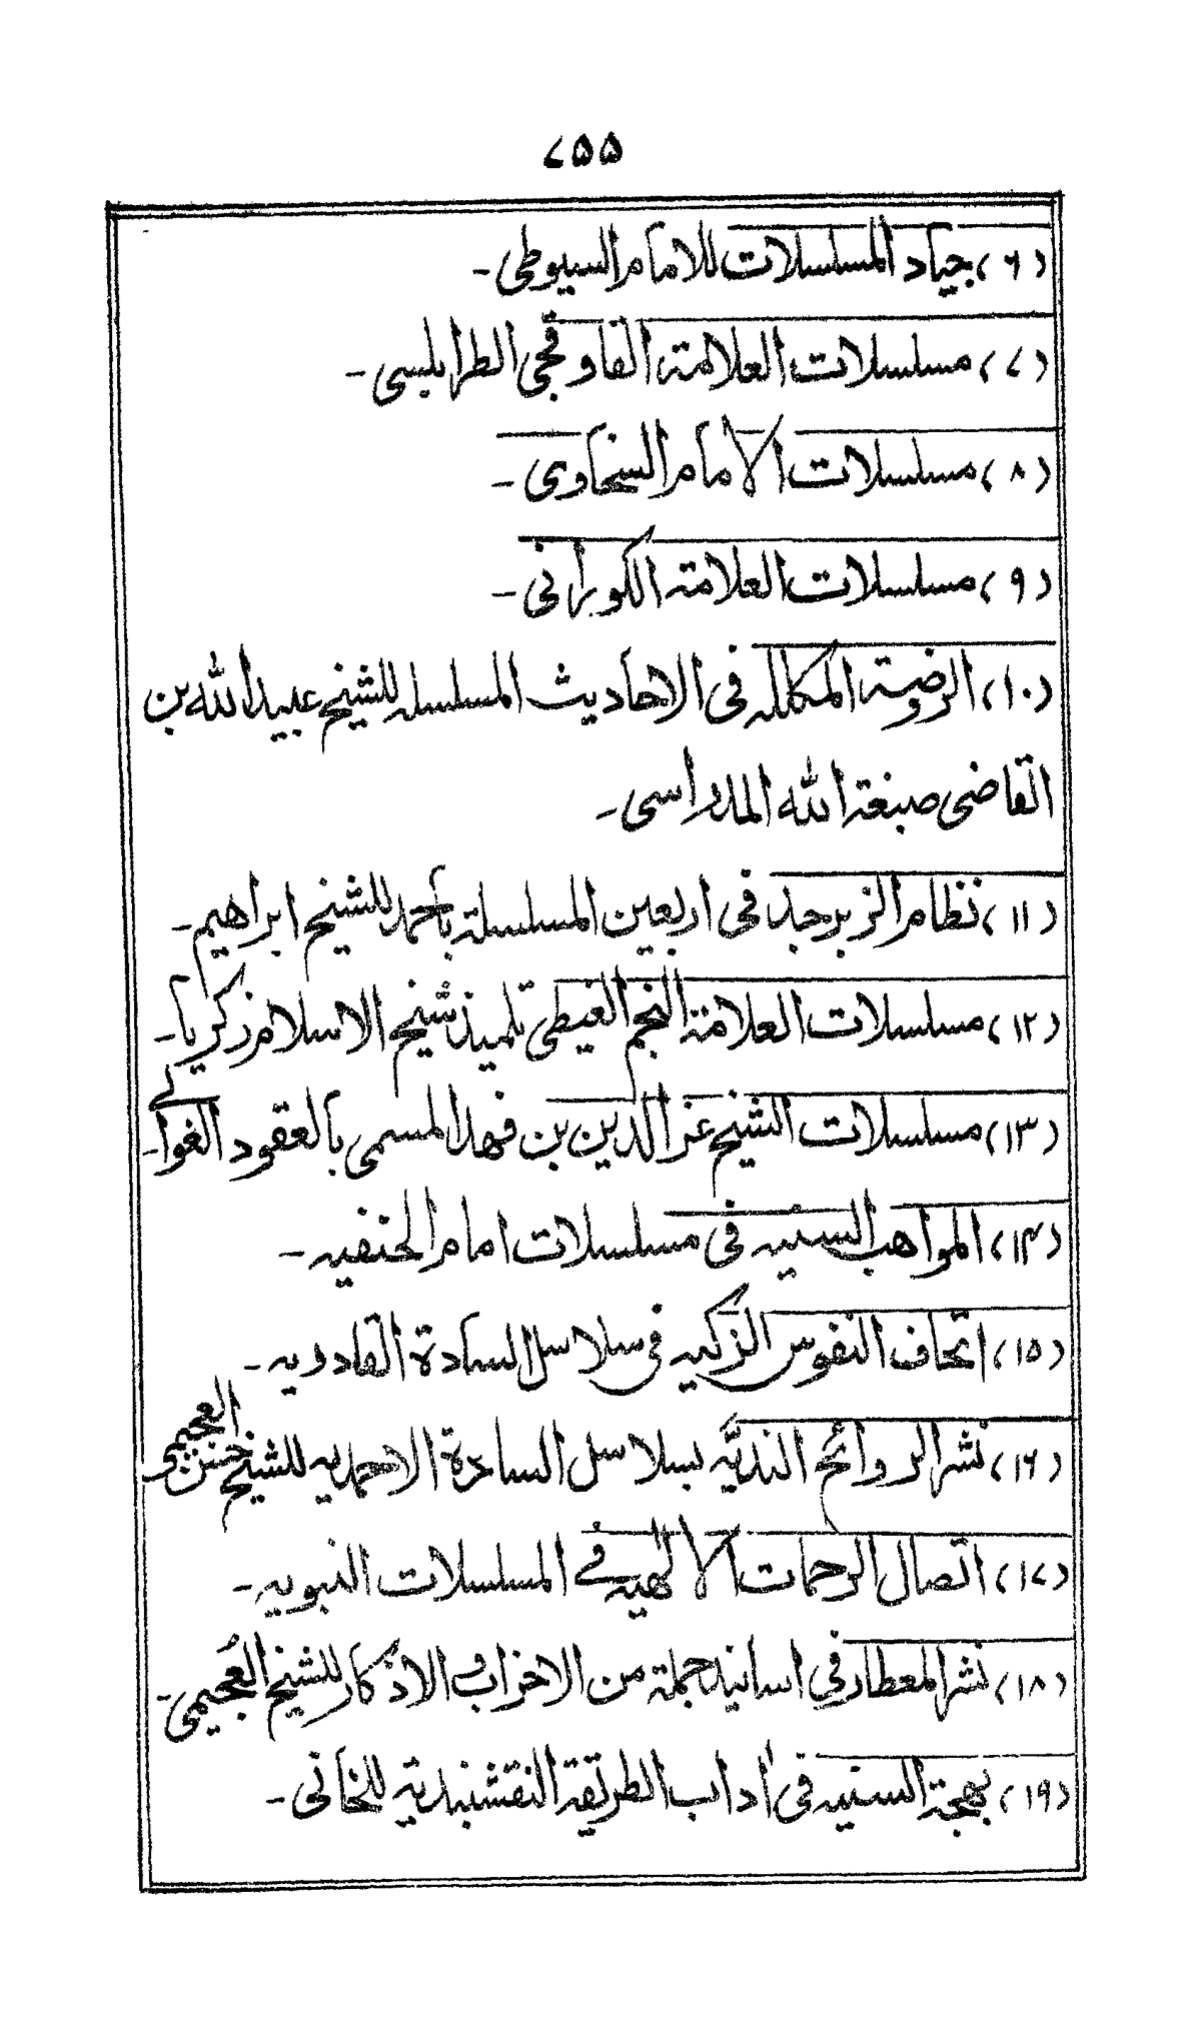 ۷۵۵
(۶) جیاد المسلسلات للامام السیوطی-
(۷) مسلسلات العلامۃ القاوقجی الطرابلسی-
(۸) مسلسلات الامام السخاوی-
(۹) مسلسلات العلامۃ الکورانی-
(۱۰) الروضۃ المکللہ فی الاحادیث المسلسلہ للشیخ عبیداللہ بن
القاضی صبغۃ اللہ المدراسی-
(۱۱) نظام الزبرجد فی اربعین المسلسلۃ باحمد للشیخ ابراھیم-
(۱۲) مسلسلات العلامۃ النجم الغیطی تلمیذ شیخ الاسلام زکریا-
(۱۳) مسلسلات الشیخ عز الدین بن فھد المسمی بالعقود الغوالے-
(۱۴) المواھب السنیہ فی مسلسلات امام الحنفیہ-
(۱۵) اتحاف النفوس الزکیہ فی سلاسل السادۃ القادریہ-
(۱۶) نشر الروائح الندیّہ بسلاسل السادۃ الاحمدیہ للشیخ حسن العجیمی-
(۱۷) اتصال الرحمات الالٰھیہ فے المسلسلات النبویہ-
(۱۸) نشر المعطار فی اسانید جملۃ من الاحزاب و الاذکار للشیخ العُجیمی-
(۱۹) بھجۃ السنیہ فی اٰداب الطریقۃ النقشبندیۃ للخانی-